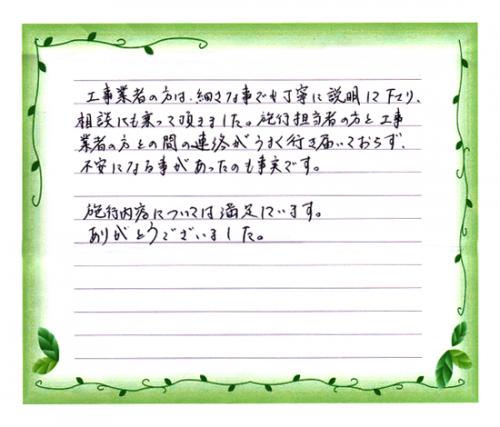 工事業者の方は、細さな事でも丁寧に説明して下さり、
相談にも乗って頂きました。施行担当者の方と工事
業者の方との間の連絡がうまく行き届いておらず、
不安になる事があったのも事実です。
施行内容については満足しています。
ありがとうございました。